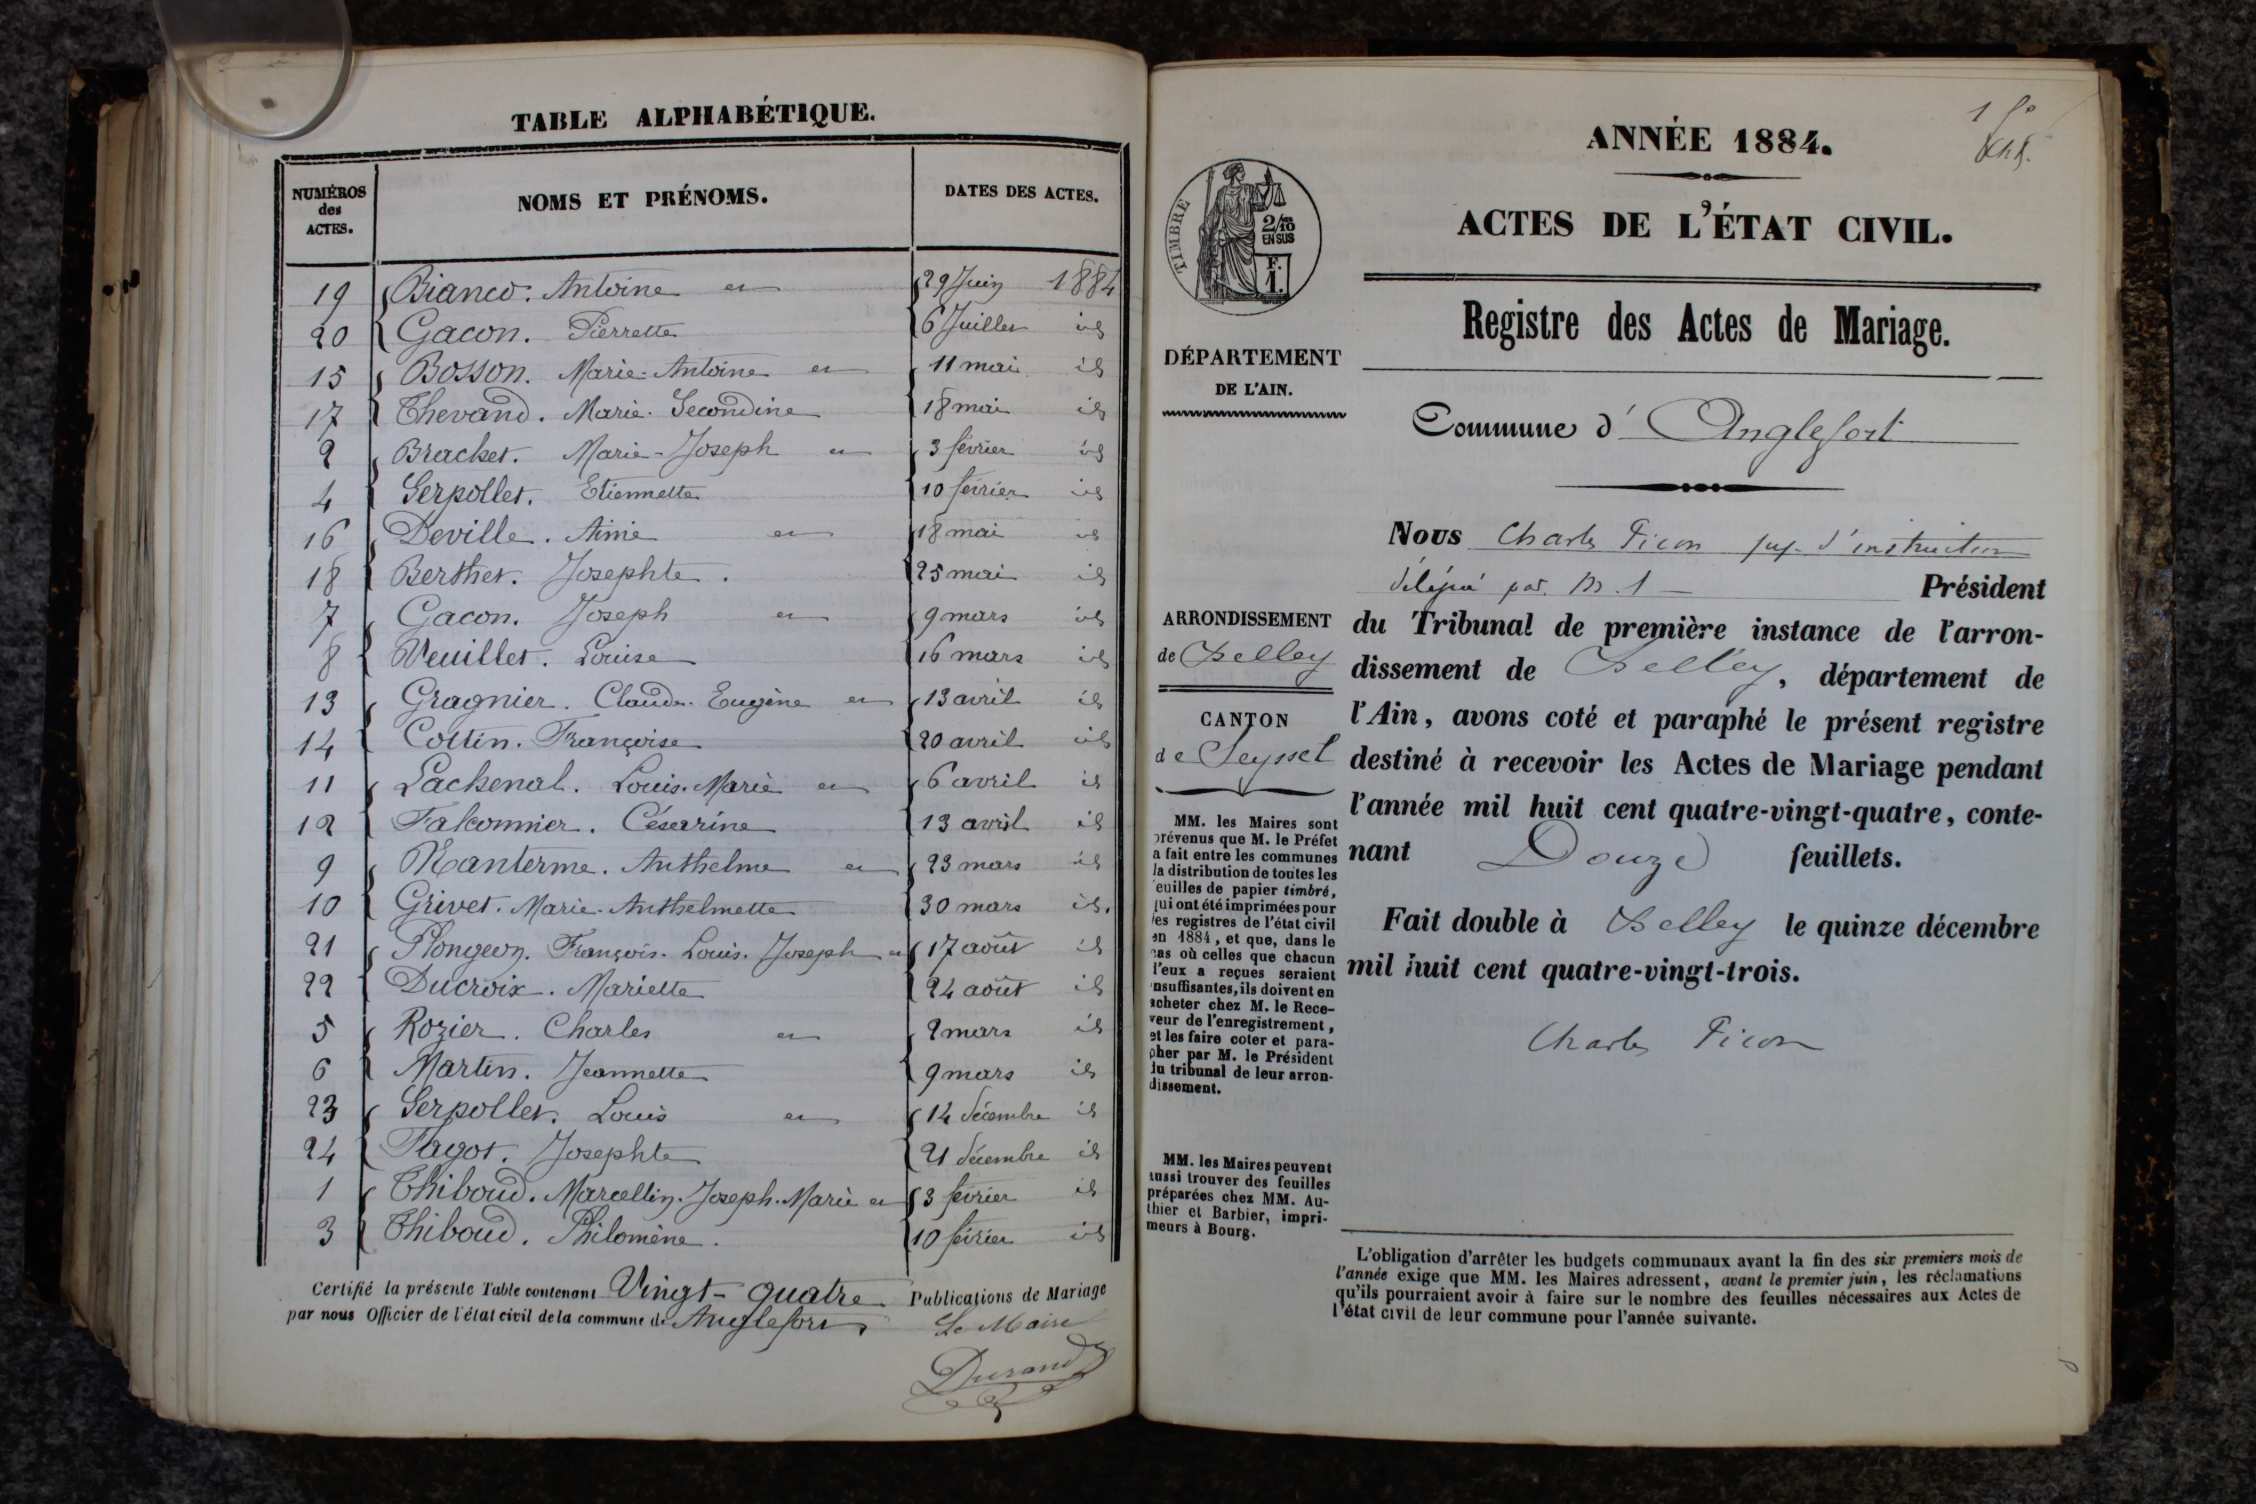 TABLE ALPHABÉTIQUE.
NUMÉROS
des
ACTES.
NOMS ET PRÉNOMS.
DATES DES ACTES.
19 Bianco. Antoine et 29 Juin 1884
20 Gacon. Pierrette 6 Juillet id
15 Bosson. Marie-Antoine et 11 mai id
17 Thevand. Marie-Secondine 18 mai id
2 Brachet. Marie-Joseph et 3 février id
4 Serpollet. Etiennette 10 février id
16 Deville. Aimé et 18 mai id
18 Berthet. Josephte. 25 mai id
7 Gacon. Joseph et 9 mars id
8 Veuillet. Louise 16 mars id
13 Gragnier. Claude-Eugène et 13 avril id
14 Cottin. Françoise 20 avril id
11 Lachenal. Louis-Marie et 6 avril id
12 Falconnier. Césarine 13 avril id
9 Manterme. Anthelme et 23 mars id
10 Grivet. Marie-Anthelmette 30 mars id.
21 Plongeon. François-Louis-Joseph et 17 août id
22 Ducroix. Mariette 24 août id
5 Rozier. Charles et 2 mars id
6 Martin. Jeannette 9 mars id
23 Serpollet. Louis et 14 décembre id
24 Fagot. Josephte 21 décembre id
1 Thiboud. Marcellin-Joseph-Marie et 3 février id
3 Thiboud. Philomène. 10 février id
Certifié la présente Table contenant Vingt-quatre Publications de Mariage
par nous Officier de l'état civil de la commune d' Anglefort
Le Maire
Durand
1 fo
ANNÉE 1884.
ACTES DE L'ÉTAT CIVIL.
TIMBRE
2/10
EN SUS
F.
1.
DÉPARTEMENT
DE L'AIN.
Registre des Actes de Mariage.
Commune d' Anglefort
Nous Charles Picon juge d'instruction
délégué par M. l Président
du Tribunal de première instance de l'arron-
dissement de Belley, département de
l'Ain, avons coté et paraphé le présent registre
destiné à recevoir les Actes de Mariage pendant
l'année mil huit cent quatre-vingt-quatre, conte-
nant Douze feuillets.
Fait double à Belley le quinze décembre
mil huit cent quatre-vingt-trois.
Charles Picon
ARRONDISSEMENT
de Belley
CANTON
de Seyssel
MM. les Maires sont
prévenus que M. le Préfet
a fait entre les communes
la distribution de toutes les
feuilles de papier timbré,
qui ont été imprimées pour
les registres de l'état civil
en 1884, et que, dans le
cas où celles que chacun
d'eux a reçues seraient
insuffisantes, ils doivent en
acheter chez M. le Rece-
veur de l'enregistrement,
et les faire coter et para-
pher par M. le Président
du tribunal de leur arron-
dissement.
MM. les Maires peuvent
aussi trouver des feuilles
préparées chez MM. Au-
thier et Barbier, impri-
meurs à Bourg.
L'obligation d'arrêter les budgets communaux avant la fin des six premiers mois de
l'année exige que MM. les Maires adressent, avant le premier juin, les réclamations
qu'ils pourraient avoir à faire sur le nombre des feuilles nécessaires aux Actes de
l'état civil de leur commune pour l'année suivante.